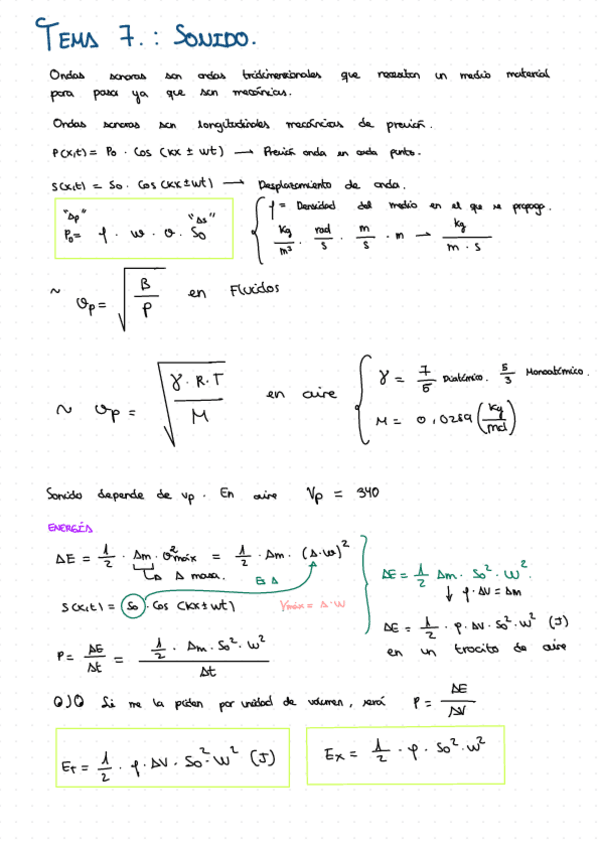 TEMA 7.: SONIDO.
Ondas sonoras son ondas tridimensionales que necesitan un medio material
para pasar ya que son mecánicas.
Ondas sonoras son longitudinales mecánicas de presión.
P(x,t) = P₀ · Cos (kx ± wt) → Presión onda en cada punto.
S(x,t) = S₀ · Cos (kx ± wt) → Desplazamiento de onda.
"Δp" "Δs"
P₀ = ρ · w · v · S₀
ρ = Densidad del medio en el que se propaga.
kg/m³ · rad/s · m/s · m → kg/m·s
~ vp = √(B/ρ) en Fluidos
~ vp = √(γ·R·T/M) en aire
γ = 7/5 Diatómico. 5/3 Monoatómico.
M = 0,0289 (kg/mol)
Sonido depende de vp. En aire Vp = 340
ENERGÍA
ΔE = 1/2 · Δm · v²máx = 1/2 · Δm · (A·w)²
↳ Δ masa. Es A
S(x,t) = S₀ · Cos (kx ± wt) Vmáx = A·w
ΔE = 1/2 Δm · S₀² · w²
↓ ρ·ΔV = Δm
ΔE = 1/2 · ρ · ΔV · S₀² · w² (J)
en un trocito de aire
P = ΔE/Δt = (1/2 · Δm · S₀² · w²)/Δt
OJO Si me la piden por unidad de volumen, será P = ΔE/ΔV
ET = 1/2 · ρ · ΔV · S₀² · w² (J)
Ex = 1/2 · ρ · S₀² · w²